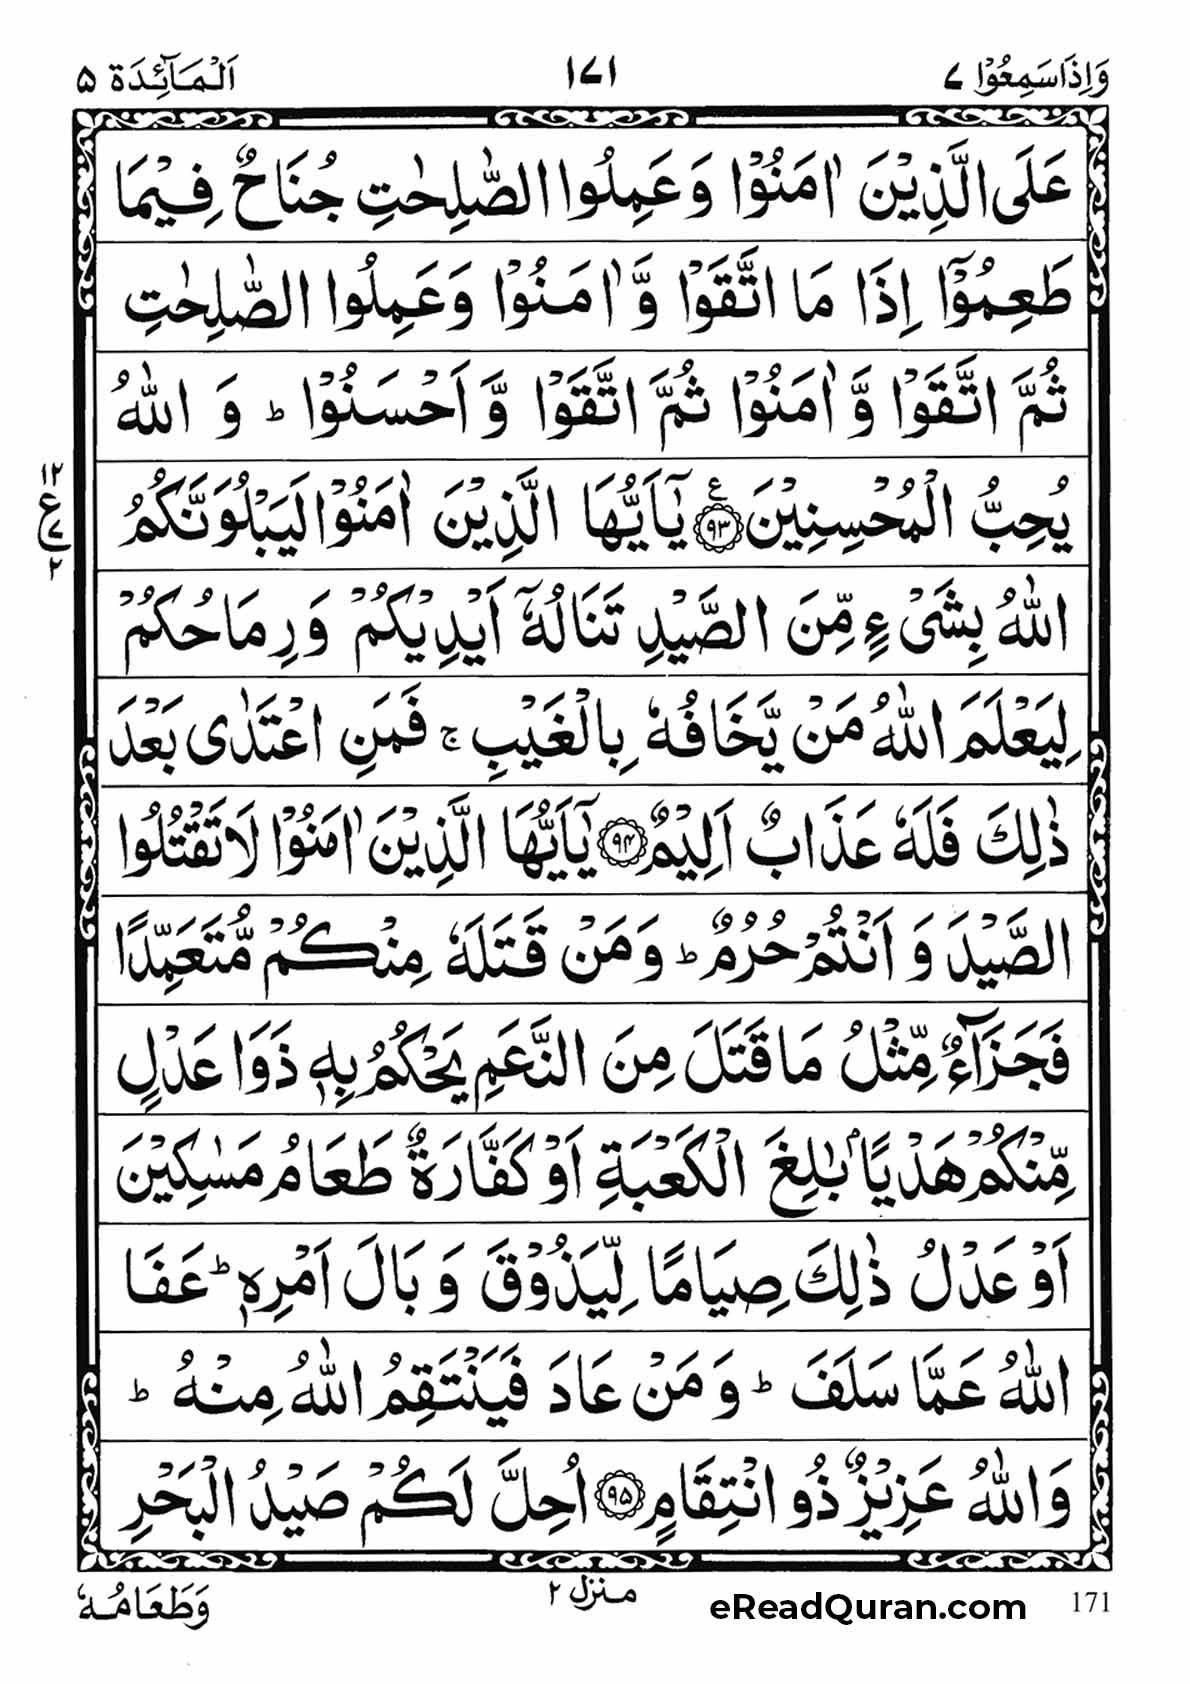 وَاِذَاسَمِعُوْا ٧ ١٧١ اَلْمَآئِدَة ٥
عَلَى الَّذِيْنَ اٰمَنُوْا وَعَمِلُوا الصّٰلِحٰتِ جُنَاحٌ فِيْمَا
طَعِمُوْۤا اِذَا مَا اتَّقَوْا وَّاٰمَنُوْا وَعَمِلُوا الصّٰلِحٰتِ
ثُمَّ اتَّقَوْا وَّاٰمَنُوْا ثُمَّ اتَّقَوْا وَّاَحْسَنُوْا ؕ وَ اللّٰهُ
يُحِبُّ الْمُحْسِنِيْنَ ع ۹۳ يٰۤاَيُّهَا الَّذِيْنَ اٰمَنُوْا لَيَبْلُوَنَّكُمُ
١٢ ع ٧ ٢
اللّٰهُ بِشَىْءٍ مِّنَ الصَّيْدِ تَنَالُهٗۤ اَيْدِيْكُمْ وَرِمَاحُكُمْ
لِيَعْلَمَ اللّٰهُ مَنْ يَّخَافُهٗ بِالْغَيْبِ ۚ فَمَنِ اعْتَدٰى بَعْدَ
ذٰلِكَ فَلَهٗ عَذَابٌ اَلِيْمٌ ۹۴ يٰۤاَيُّهَا الَّذِيْنَ اٰمَنُوْا لَا تَقْتُلُوا
الصَّيْدَ وَ اَنْتُمْ حُرُمٌ ؕ وَمَنْ قَتَلَهٗ مِنْكُمْ مُّتَعَمِّدًا
فَجَزَآءٌ مِّثْلُ مَا قَتَلَ مِنَ النَّعَمِ يَحْكُمُ بِهٖ ذَوَا عَدْلٍ
مِّنْكُمْ هَدْيًۢا بٰلِغَ الْكَعْبَةِ اَوْ كَفَّارَةٌ طَعَامُ مَسٰكِيْنَ
اَوْ عَدْلُ ذٰلِكَ صِيَامًا لِّيَذُوْقَ وَبَالَ اَمْرِهٖ ؕ عَفَا
اللّٰهُ عَمَّا سَلَفَ ؕ وَمَنْ عَادَ فَيَنْتَقِمُ اللّٰهُ مِنْهُ ؕ
وَاللّٰهُ عَزِيْزٌ ذُو انْتِقَامٍ ۹۵ اُحِلَّ لَكُمْ صَيْدُ الْبَحْرِ
وَطَعَامُهٗ منزل ٢ eReadQuran.com 171